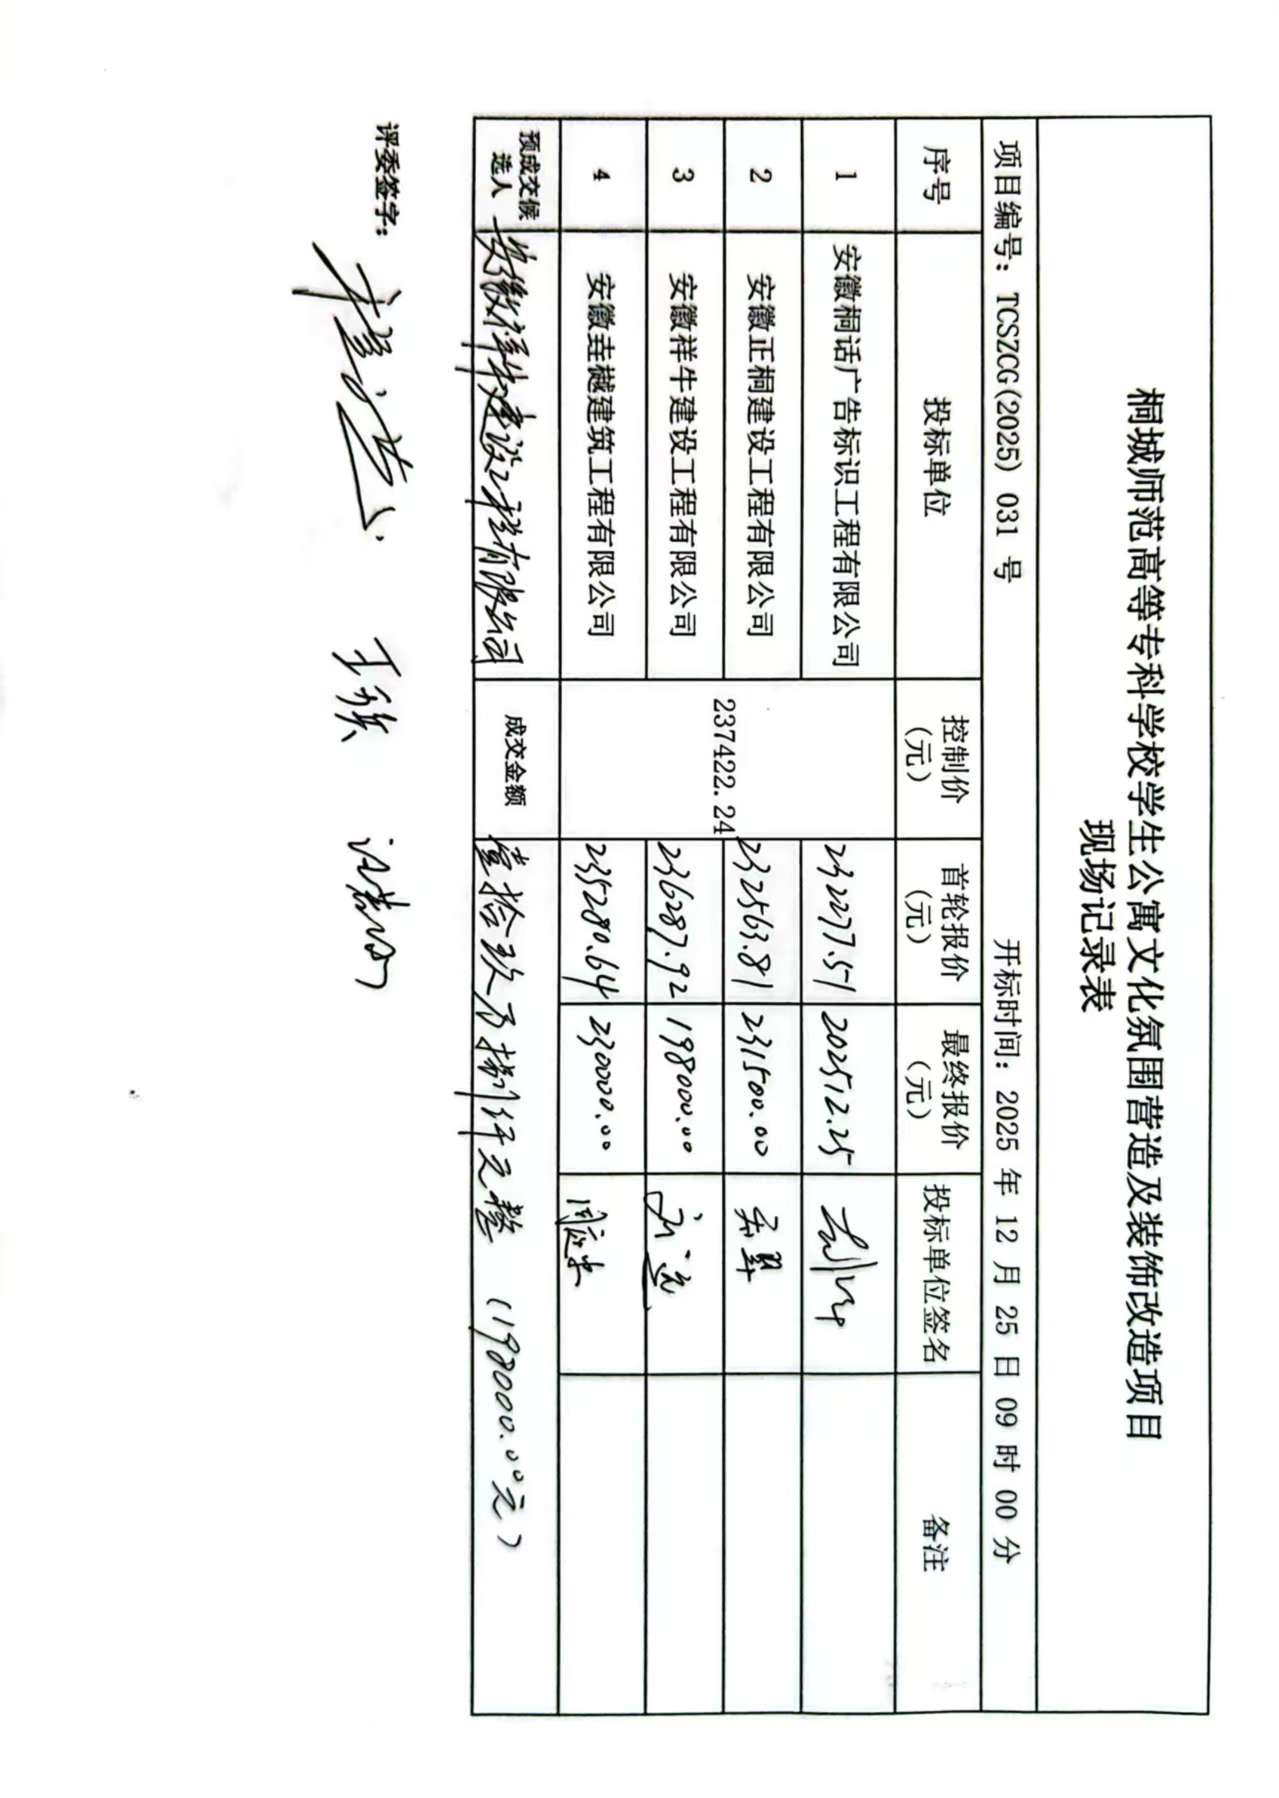 桐城师范高等专科学校学生公寓文化氛围营造及装饰改造项目
现场记录表
项目编号：TCSZCG(2025) 031 号 开标时间：2025 年 12 月 25 日 09 时 00 分
序号 投标单位 控制价（元） 首轮报价（元） 最终报价（元） 投标单位签名 备注
1 安徽桐话广告标识工程有限公司 237422.24 232277.51 202512.25
2 安徽正桐建设工程有限公司 232563.81 231500.00
3 安徽祥牛建设工程有限公司 236287.92 198000.00
4 安徽垚樾建筑工程有限公司 235280.64 230000.00
预成交候选人 安徽祥牛建设工程有限公司 成交金额 壹拾玖万捌仟元整（198000.00元）
评委签字：